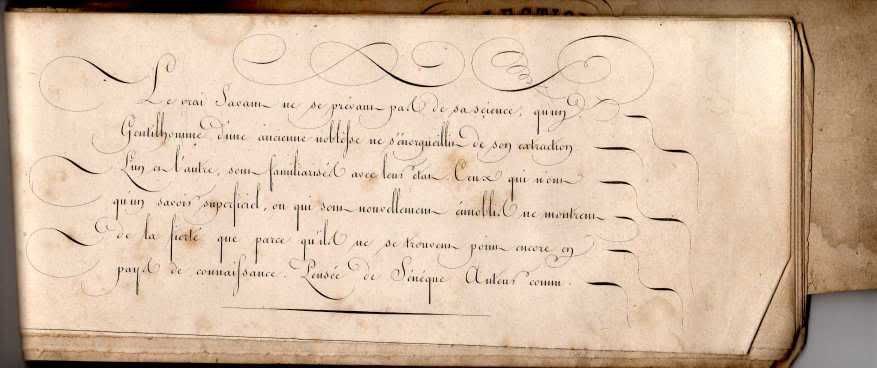 Le vrai Savant ne se prévaut pas de sa science, qu'un
Gentilhomme d'une ancienne noblesse ne s'énorgueillit de son extraction
L'un et l'autre, sont familiarisés avec leur état. Ceux qui n'ont
qu'un savoir superficiel, ou qui sont nouvellement énnoblis ne montrent
de la fierté que parce qu'ils ne se trouvent point encore en
pays de connaissance. Pensée de Sénéque Auteur connu.